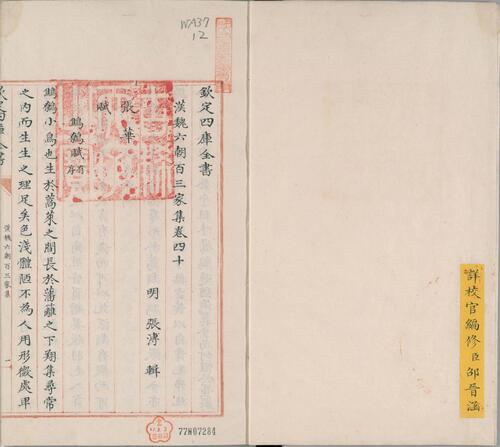 詳校官編修臣邵晉涵
WA37
12
欽定四庫全書
漢魏六朝百三家集卷四十
明 張溥 輯
張華
賦
鷦鷯賦有序
鷦鷯小鳥也生於蒿萊之間長於藩籬之下翔集尋常
之内而生生之理足矣色淺體陋不為人用形微處卑
欽定四庫全書
漢魏六朝百三家集
一
77W07284